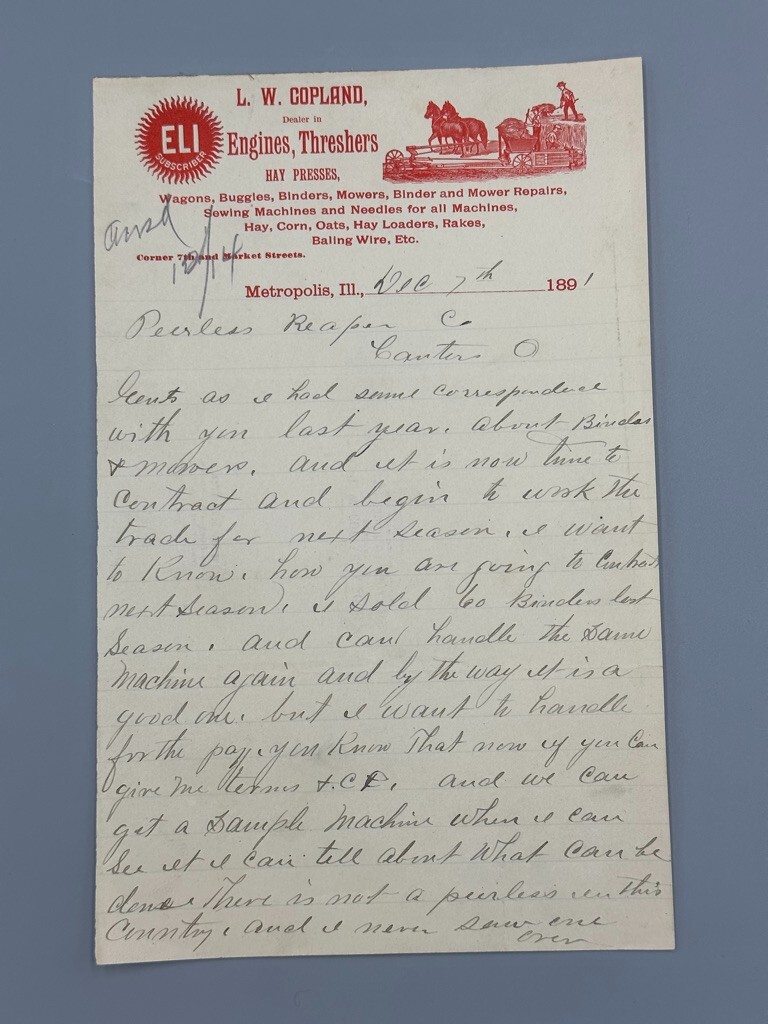 L. W. COPLAND,
Dealer in
ELI
SUBSCRIBER
Engines, Threshers
HAY PRESSES,
Wagons, Buggies, Binders, Mowers, Binder and Mower Repairs,
Sewing Machines and Needles for all Machines,
Hay, Corn, Oats, Hay Loaders, Rakes,
Baling Wire, Etc.
Ansd
12/14
Corner 7th and Market Streets.
Metropolis, Ill., Dec 7th 1891
Peerless Reaper Co
Canton O
Gents as I had some correspondence
with you last year. about Binders
& mowers. and it is now time to
Contract and begin to work the
trade for next season. I want
to Know. how you are going to Contract
next Season. I sold 60 Binders last
Season. and can handle the Same
Machine again and by the way it is a
good one. but I want to handle
for the pay. you Know That now if you Can
give me terms &.C. and we can
get a Sample Machine when I can
See it I can tell about What Can be
done. There is not a peerless in this
Country. and I never saw one
over